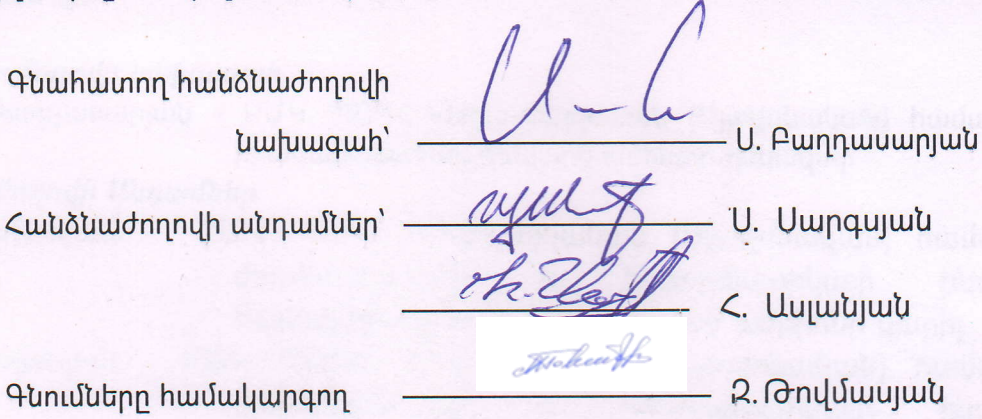 Գնահատող հանձնաժողովի
նախագահ՝ Ս. Բաղդասարյան
Հանձնաժողովի անդամներ՝ Ս. Սարգսյան
Հ. Ասլանյան
Գնումները համակարգող Զ.Թովմասյան